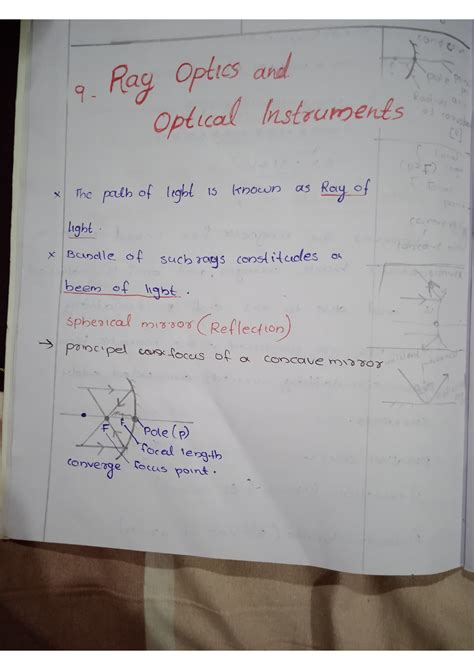 9. Ray Optics and
Optical Instruments
x The path of light is known as Ray of
light.
x Bundle of such rays constitudes a
beem of light.
spherical mirror (Reflection)
→ principel focus of a concave mirror
F f Pole (p)
focal length
converge focus point.